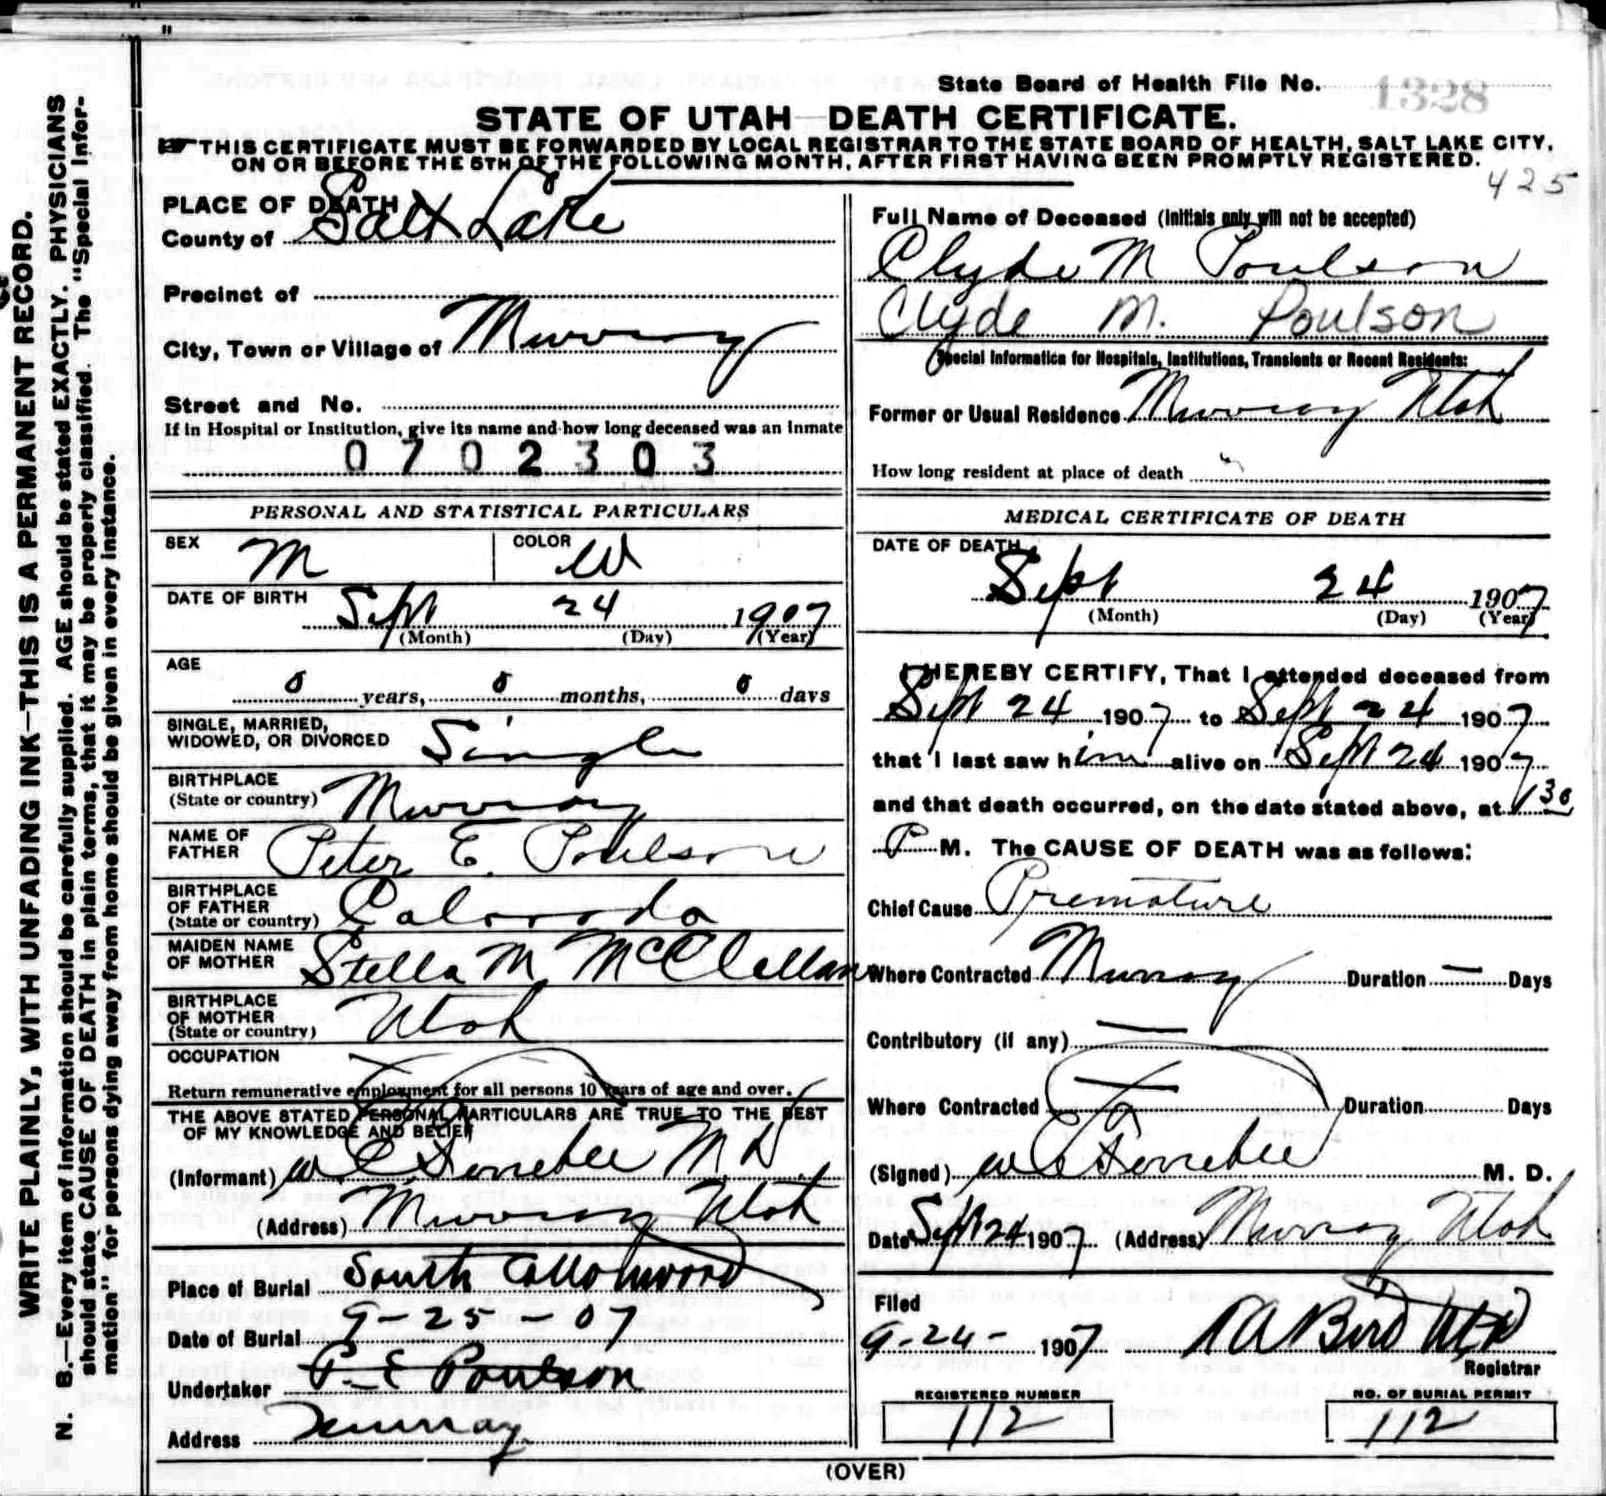 WRITE PLAINLY, WITH UNFADING INK—THIS IS A PERMANENT RECORD.
N. B.—Every item of information should be carefully supplied. AGE should be stated EXACTLY. PHYSICIANS
should state CAUSE OF DEATH in plain terms, that it may be properly classified. The "Special Infor-
mation" for persons dying away from home should be given in every instance.
State Board of Health File No. 1328
STATE OF UTAH—DEATH CERTIFICATE.
THIS CERTIFICATE MUST BE FORWARDED BY LOCAL REGISTRAR TO THE STATE BOARD OF HEALTH, SALT LAKE CITY,
ON OR BEFORE THE 5TH OF THE FOLLOWING MONTH, AFTER FIRST HAVING BEEN PROMPTLY REGISTERED.
425
PLACE OF DEATH
County of Salt Lake
Precinct of
City, Town or Village of Murray
Street and No.
If in Hospital or Institution, give its name and how long deceased was an Inmate
0702303
PERSONAL AND STATISTICAL PARTICULARS
SEX M COLOR W
DATE OF BIRTH Sept 24 1907
(Month) (Day) (Year)
AGE
0 years, 0 months, 0 days
SINGLE, MARRIED,
WIDOWED, OR DIVORCED Single
BIRTHPLACE
(State or country) Murray
NAME OF
FATHER Peter E. Poulson
BIRTHPLACE
OF FATHER
(State or country) Colorado
MAIDEN NAME
OF MOTHER Stella M McClellan
BIRTHPLACE
OF MOTHER
(State or country) Utah
OCCUPATION
Return remunerative employment for all persons 10 years of age and over.
THE ABOVE STATED PERSONAL PARTICULARS ARE TRUE TO THE BEST
OF MY KNOWLEDGE AND BELIEF
(Informant) W C Ferrebee M D.
(Address) Murray Utah
Place of Burial South Cottonwood
Date of Burial 9-25-07
Undertaker P. E Poulson
Address Murray
Full Name of Deceased (Initials only will not be accepted)
Clyde M Poulson
Clyde M. Poulson
Special Information for Hospitals, Institutions, Transients or Recent Residents:
Former or Usual Residence Murray Utah
How long resident at place of death
MEDICAL CERTIFICATE OF DEATH
DATE OF DEATH
Sept 24 1907
(Month) (Day) (Year)
I HEREBY CERTIFY, That I attended deceased from
Sept 24 1907 to Sept 24 1907
that I last saw him alive on Sept 24 1907
and that death occurred, on the date stated above, at 1 30
P M. The CAUSE OF DEATH was as follows:
Chief Cause Premature
Where Contracted Murray Duration — Days
Contributory (if any) —
Where Contracted — Duration Days
(Signed) W C Ferrebee M. D.
Date Sept 24 1907 (Address) Murray Utah
Filed
9-24- 1907 R A Bird MD
Registrar
REGISTERED NUMBER
112
NO. OF BURIAL PERMIT
112
(OVER)